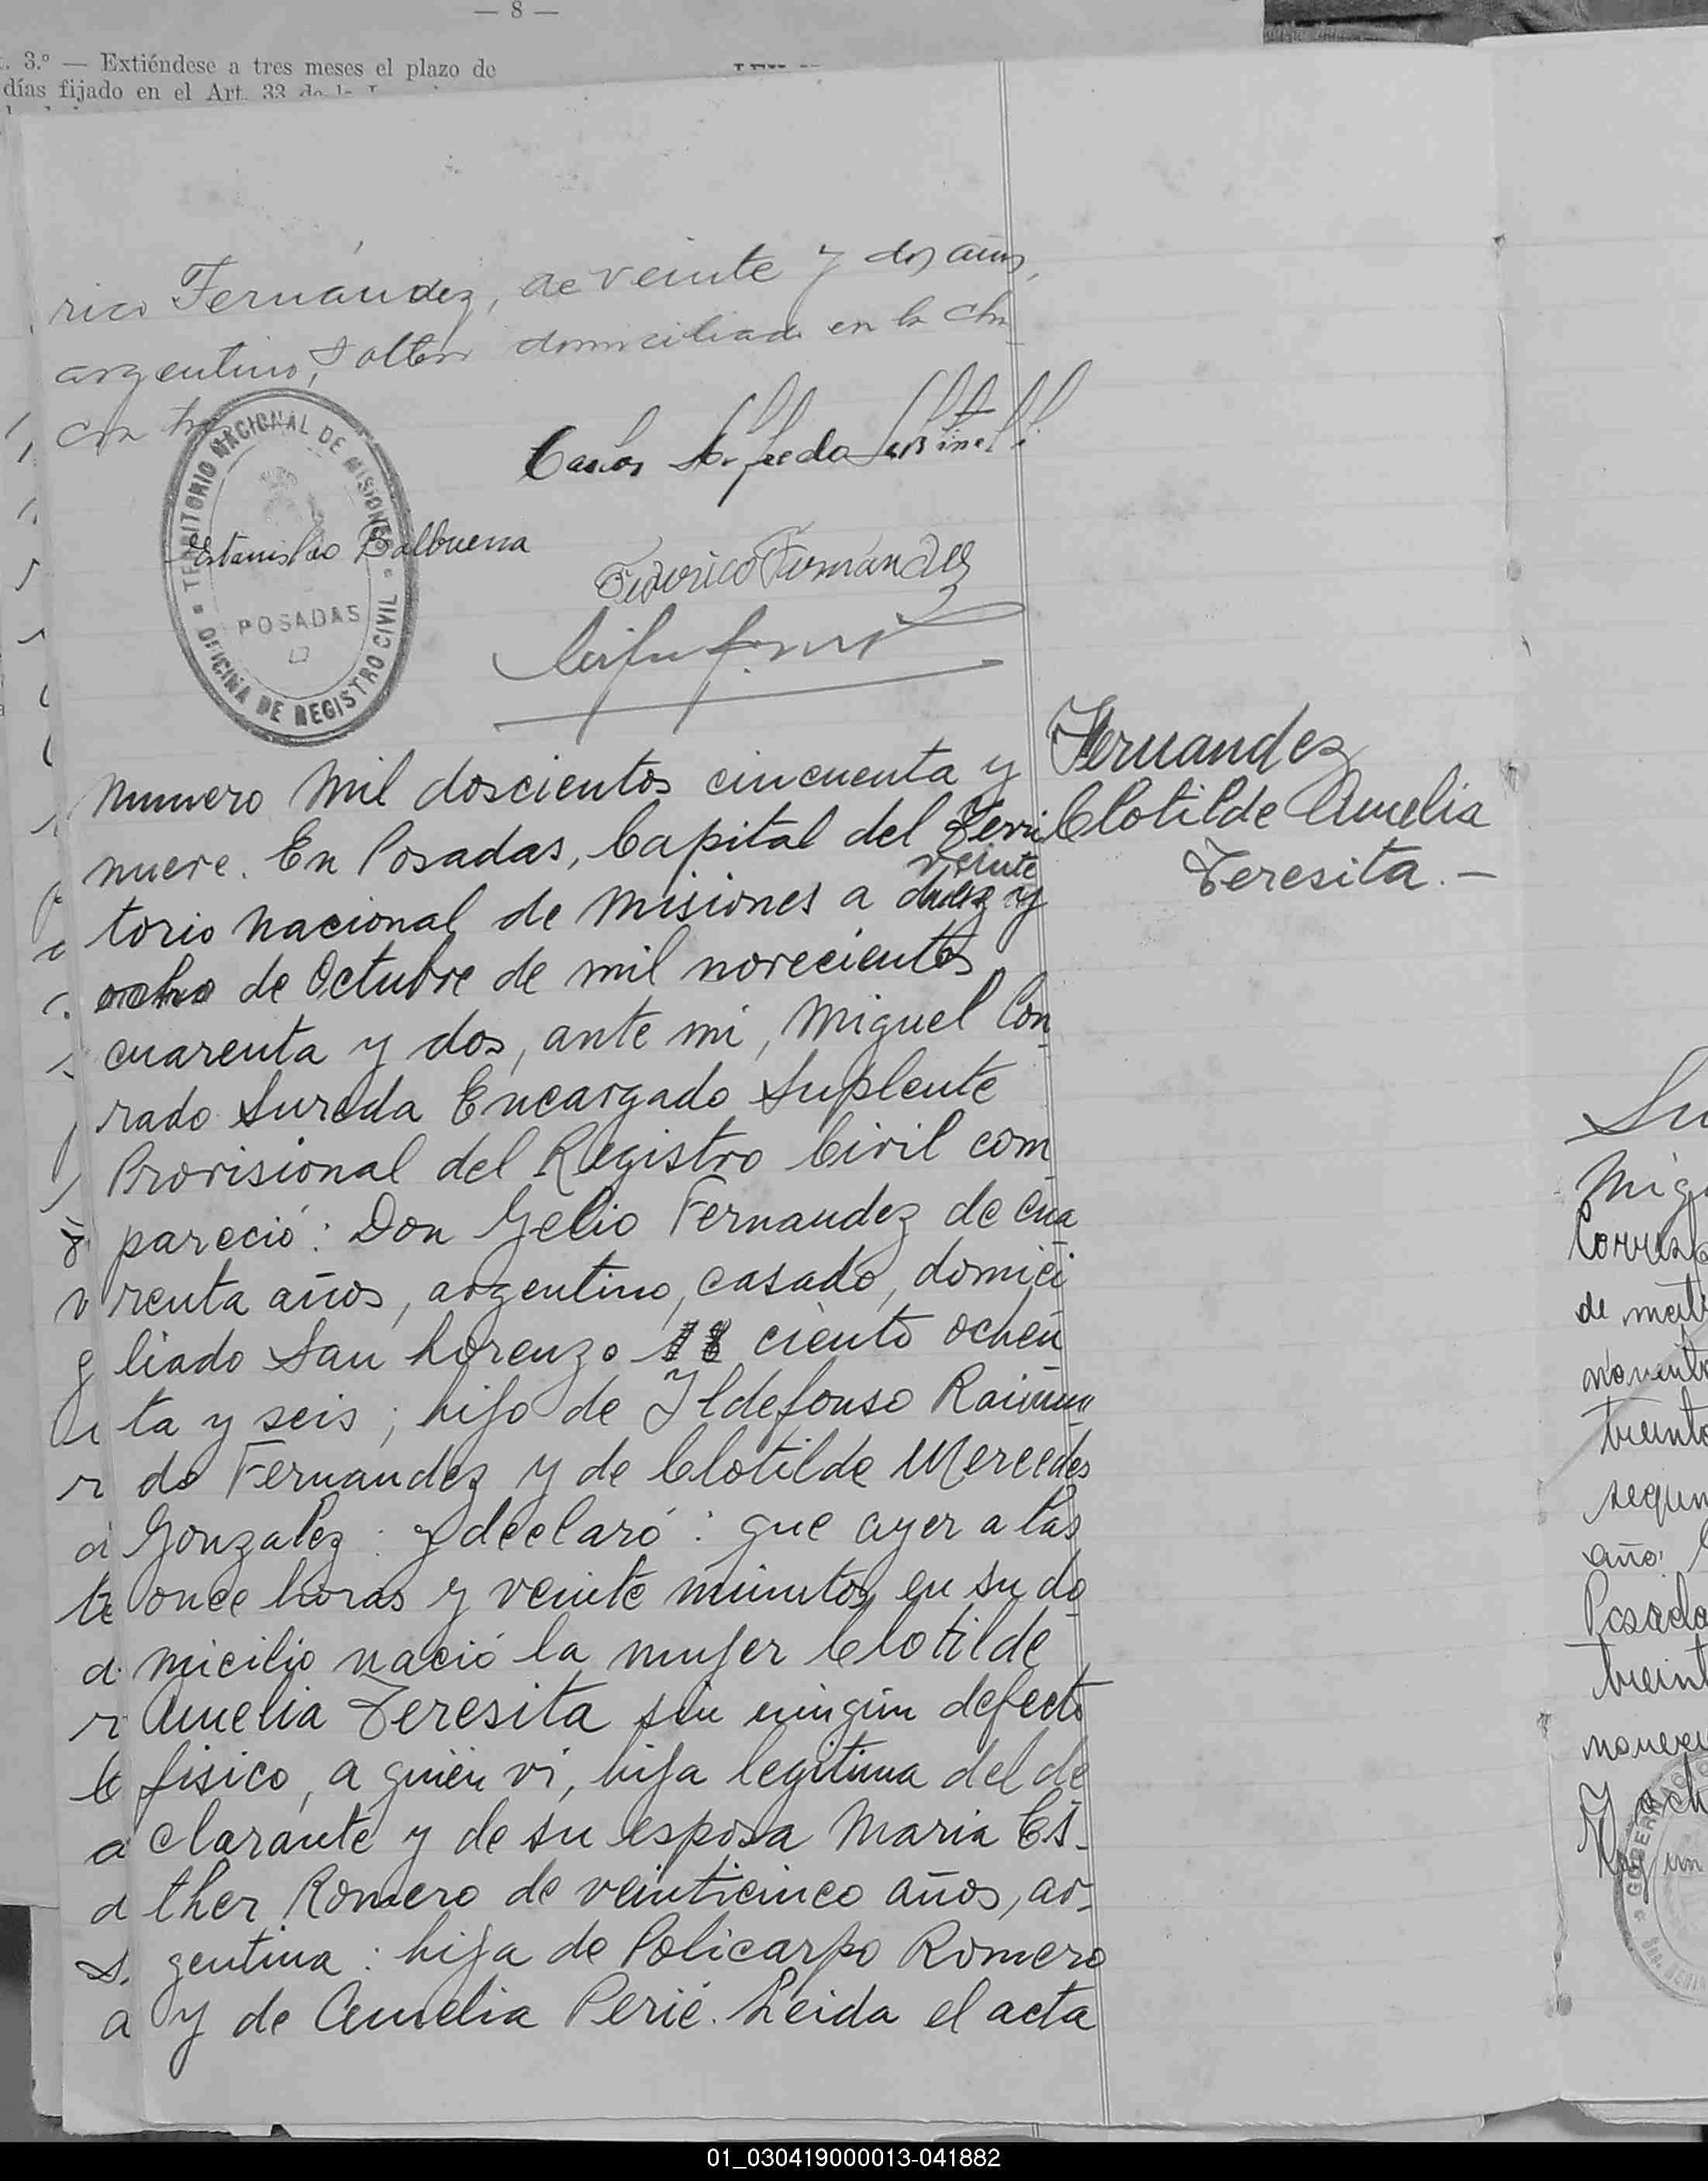 — 8 —
. 3.º — Extiéndese a tres meses el plazo de
días fijado en el Art. 33 de la
rico Fernández, de veinte y dos años,
argentino, soltero domiciliado en la cha
cra tres
TERRITORIO NACIONAL DE MISIONES
POSADAS
OFICINA DE REGISTRO CIVIL
Carlos Alfredo
Estanislao Balbuena
Federico Fernandez
Fernandez
Clotilde Amelia
Teresita. —
numero mil doscientos cincuenta y
nueve. En Posadas, Capital del Terri
veinte
torio nacional de Misiones a diez y
ocho de Octubre de mil novecientos
cuarenta y dos, ante mi, Miguel Con
rado Sureda Encargado Suplente
Provisional del Registro Civil com
pareció: Don Gelio Fernandez de cua
renta años, argentino, casado, domici
liado San Lorenzo 18 ciento ochen
ta y seis; hijo de Ildefonso Raimun
do Fernandez y de Clotilde Mercedes
Gonzalez: y declaró: que ayer a las
once horas y veinte minutos en su do
micilio nació la mujer Clotilde
Amelia Teresita sin ningún defecto
fisico, a quien vi, hija legitima del de
clarante y de su esposa Maria Es-
ther Romero de veinticinco años, ar-
gentina: hija de Policarpo Romero
y de Amelia Perié. Leida el acta
Corres
de
segun
año.
Posada
treint
01_030419000013-041882